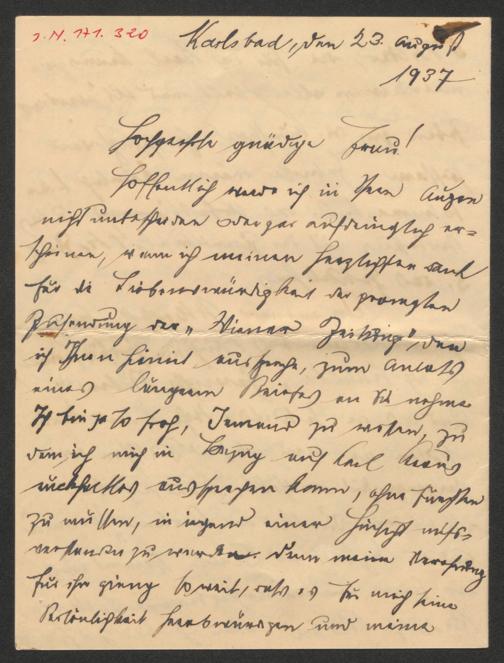 I.N. 171.320
Karlsbad, den 23. August
1937
Hochgeehrte gnädige Frau!
Hoffentlich werde ich in Ihren Augen
nicht unbescheiden oder gar aufdringlich er-
scheinen, wenn ich meinen herzlichsten Dank
für die Liebenswürdigkeit der prompten
Zusendung der „Wiener Zeitung", den
ich Ihnen hiemit ausspreche, zum Anlass
eines längeren Briefes an Sie nehme
Ich bin ja so froh, Jemand zu wissen, zu
dem ich mich in Bezug auf Karl Kraus
rückhaltlos aussprechen kann, ohne fürchten
zu müssen, in irgend einer Hinsicht miss-
verstanden zu werden. Denn meine Verehrung
für ihn gieng so weit, dass es für mich seine
Persönlichkeit herabwürdigen und meine